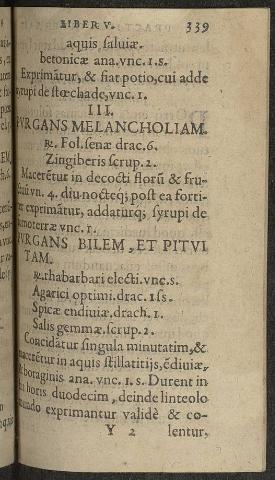 LIBER V. 339
aquis saluiæ.
betonicæ ana. vnc. 1. s.
Exprimãtur, & fiat potio, cui adde
syrupi de stœchade, vnc. 1.
III.
PVRGANS MELANCHOLIAM.
℞. Fol. senæ drac. 6.
Zingiberis scrup. 2.
Macerẽtur in decocti florũ & fru-
vn. 4. diu nocteq́; post ea forti-
exprimãtur, addaturq́; syrupi de
vnc. 1.
PVRGANS BILEM, ET PITVI
TAM.
℞. rhabarbari electi. vnc. s.
Agarici optimi. drac. 1 ss.
Spicæ endiuiæ, drach. 1.
Salis gemmæ. scrup. 2.
Concidãtur singula minutatim, &
macerẽtur in aquis stillatitijs, ẽdiuiæ,
& boraginis ana. vnc. 1. s. Durent in
horis duodecim, deinde linteolo
exprimantur validè & co-
Y 2 lentur,